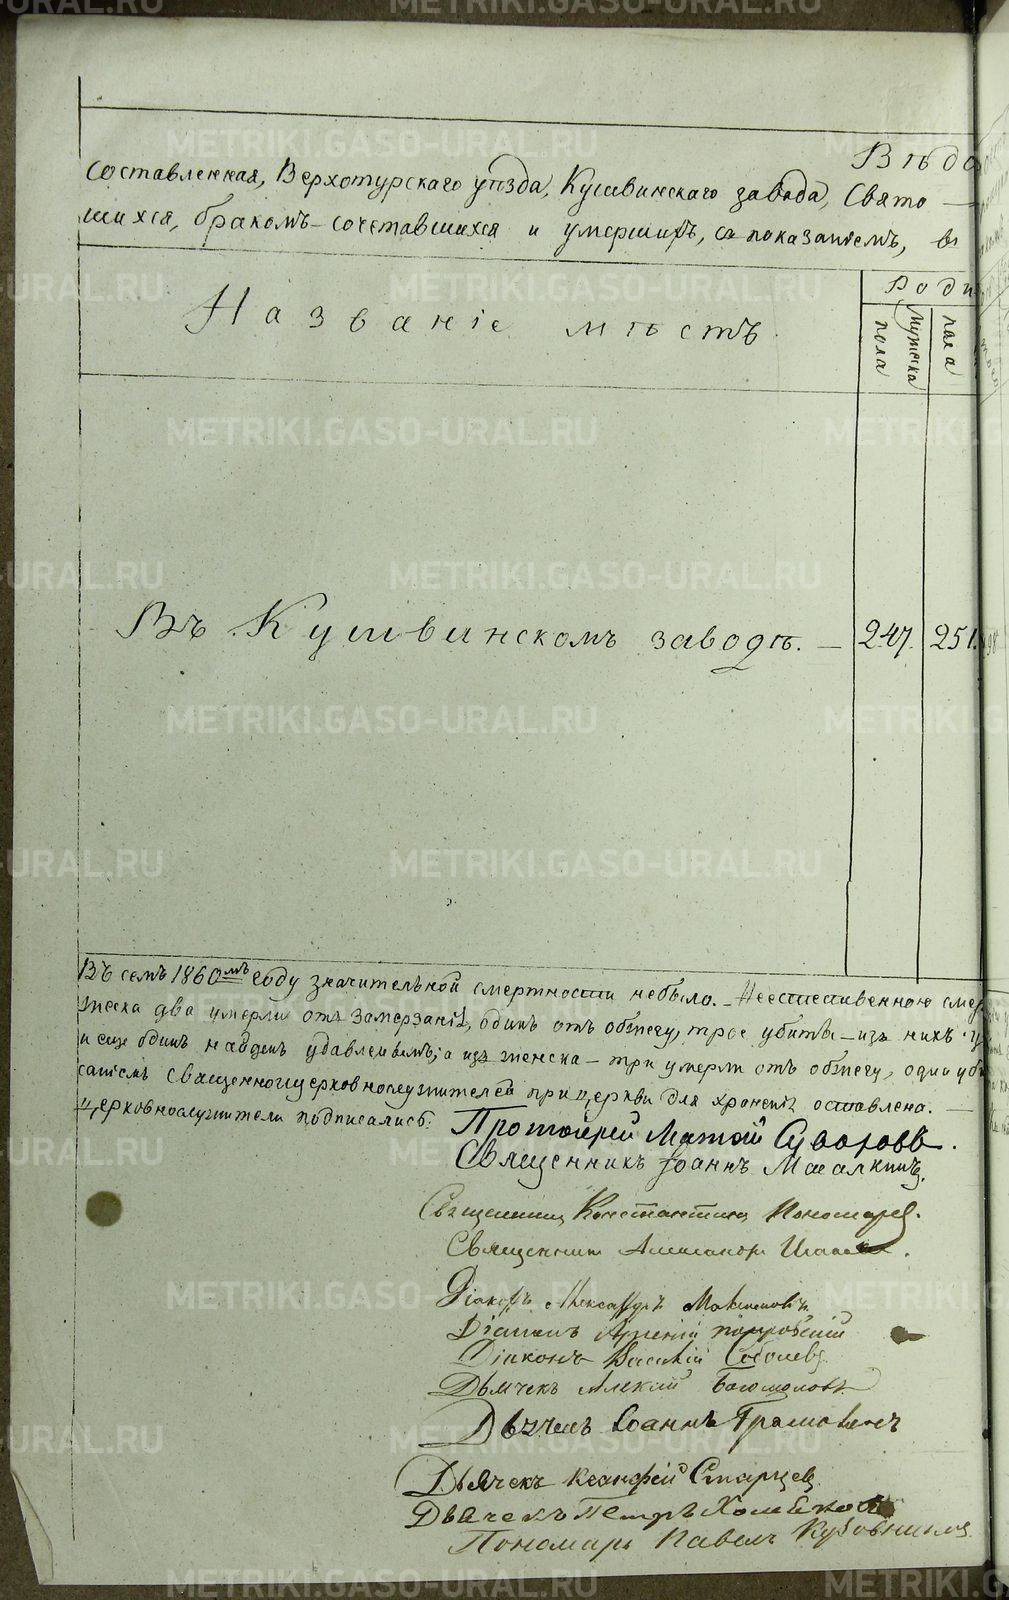 Вѣдо
составленная, Верхотурскаго уѣзда, Кушвинскаго завода, Свято —
шихся, бракомъ-сочетавшихся и умершихъ, съ показаніемъ, въ
Названіе мѣстъ.
Роди
Мужеска пола
пола
Въ Кушвинскомъ заводѣ. — 247. 251.
Въ семъ 1860мъ году значительной смертности небыло. — Неестественною смер
жеска два умерли отъ замерзанія, одинъ отъ обжегу, трое убиты — изъ нихъ
и еще одинъ найденъ удавленнымъ; а изъ женска — три умерли отъ обжегу, одна уби
саніемъ священноцерковнослужителей при церкви для храненія оставлена. —
церковнослужители подписались:
Протоіерей Матѳій Суворовъ.
Священникъ Іоаннъ
Священникъ Константинъ Пономаревъ.
Священникъ Александръ
Діаконъ Александръ
Діаконъ Арсеній
Діаконъ Василій Соболевъ.
Дьячекъ Алексій Богомоловъ
Дьячекъ Іоаннъ
Дьячекъ Ксанфій Старцевъ
Дьячекъ Петръ
Пономарь Павелъ
METRIKI.GASO-URAL.RU